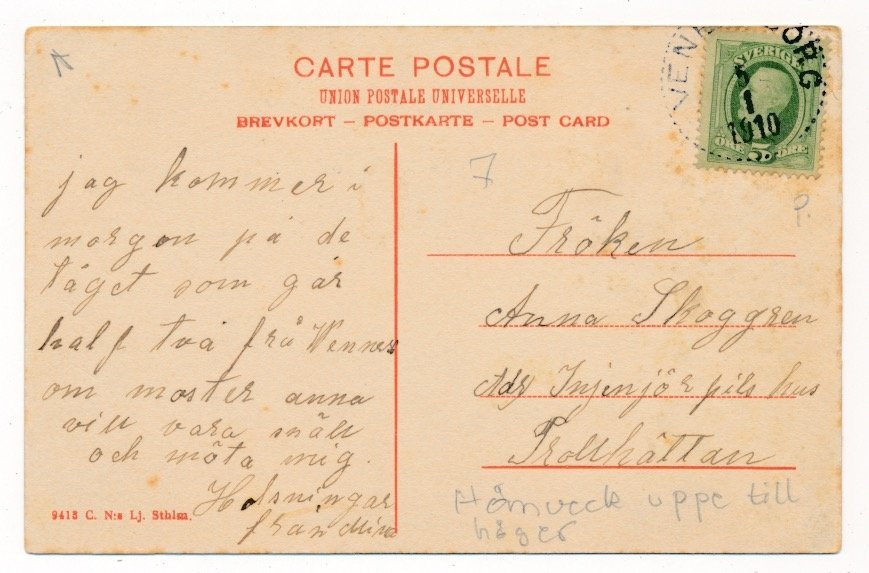 CARTE POSTALE
UNION POSTALE UNIVERSELLE
BREVKORT – POSTKARTE – POST CARD
VENERSBORG
5
1
1910
SVERIGE
ÖRE 5 ÖRE
7
P.
jag kommer i
morgon på de
tåget som går
half två frå Venners
om moster anna
vill vara snäll
och möta mig.
Helsningar
från
Fröken
Anna Skoggren
Adr Injenjör pils hus
Trollhättan
Hörnveck uppe till
höger
9413 C. N:s Lj. Sthlm.